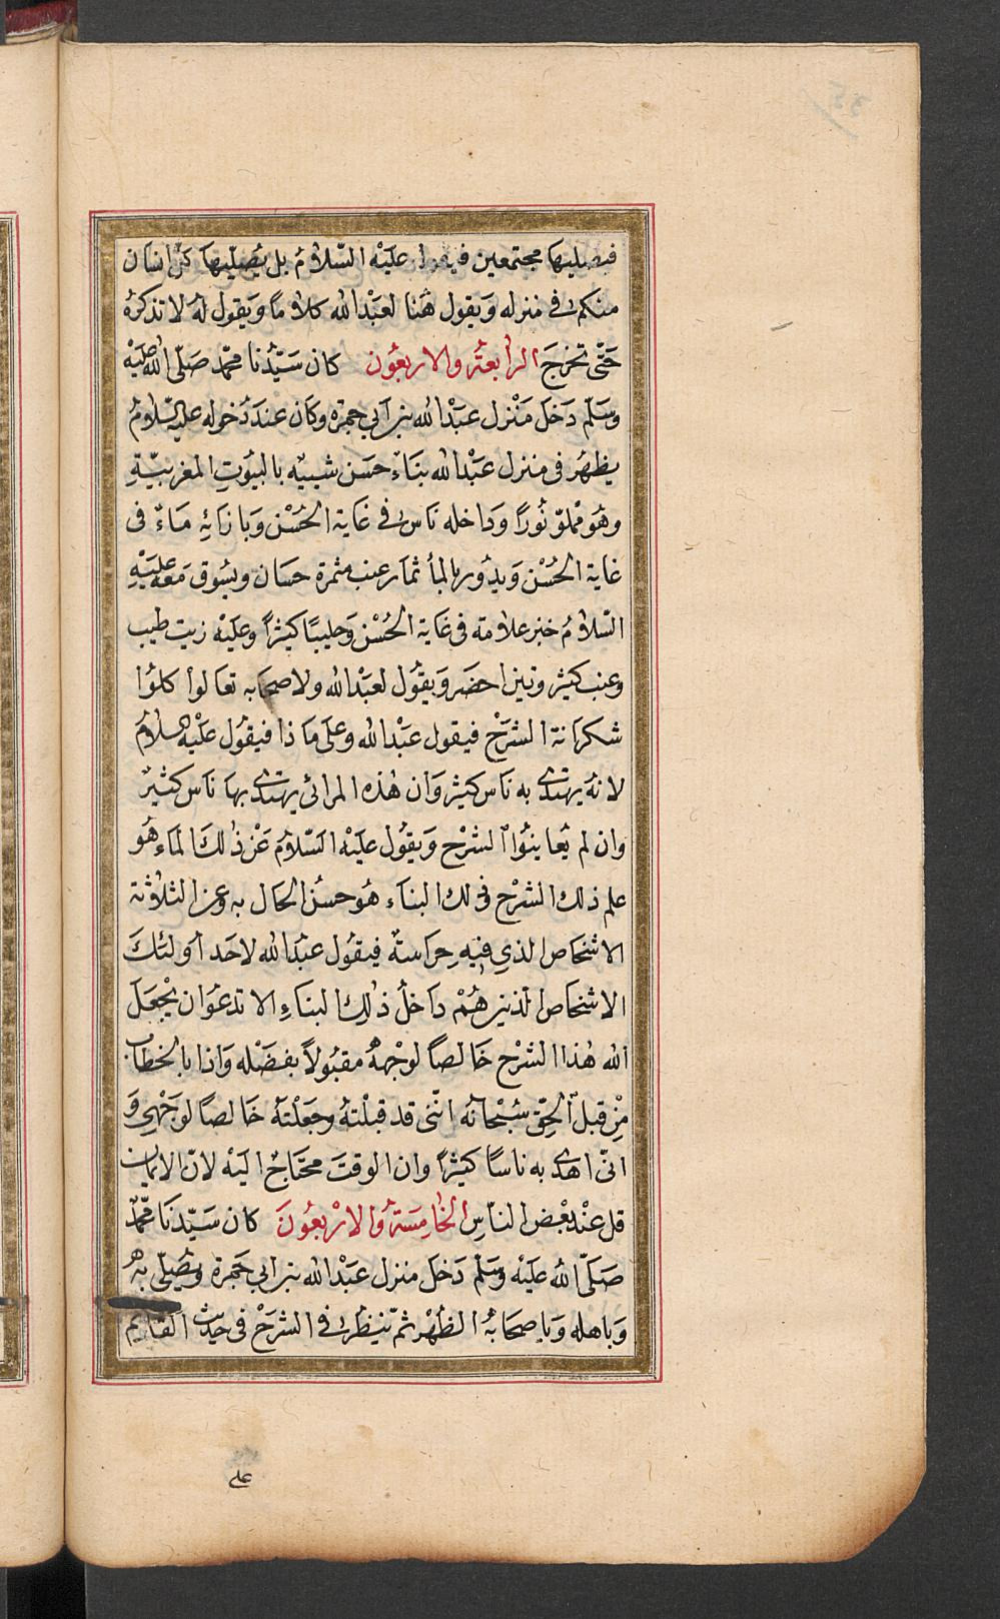 فيصليها مجتمعين فيقول عليْه السّلامُ بل يُصلّيها كلّ انسان
منكم فى منزله وَيقول هُنا لعَبْد الله كلامًا وَيقول لهُ لا تذكرهُ
حَتّى تخرجَ الرابعَة والاربعُون كان سَيّدُنا محمّد صَلّى الله عليْه
وسَلم دَخلَ مَنْزل عبَدْ الله بن ابى جمرة وكان عندَ دُخوله عليه السّلامُ
يظهرُ فى منزل عَبْد الله بنَاءٌ حسَن شبيْه بالبيُوتِ المغربيّةِ
وهُو مملوّ نُورًا وَداخله ناس فى غاية الحُسْن وَبازائِه مَاءٌ فى
غاية الحُسْن وَيدُور بالمأ ثمار عنب مثمرة حسَان ويسُوق مَعَه عليْهِ
السّلامُ خبز علامته فى غاية الحُسْن وَحليبًا كثيرًا وعليْه زيت طيب
وعنب كثير وتين احضَر وَيقُول لعَبْد الله ولاصحَابه تعَالوا كلوُا
شكرانة الشرْح فيقول عَبْد الله وعلى مَاذا فيقُول عليْه السلامُ
لانهُ يهتدى به ناس كثير وَان هٰذه المرائى يهتدى بها ناس كثيرٌ
وان لم يُعاينُوا الشرْح وَيقُول عليْه السّلامُ عَنْ ذٰلكَ المَاء هُو
علم ذلك الشرْح فى لك البنآء هُو حسُن الحال به وعن الثلاثة
الاشخاص الذى فيْه حِراسةٌ فيقُول عبْد الله لاحَد اولئكَ
الاشخاص الّذين هُمْ دَاخلُ ذٰلِكَ البناءِ الا تدعُوَان يجْعَلَ
الله هٰذا الشرْح خَالصًا لوجْههِ مقبُولاً بفضْله وَاذا بالخطاب
مِنْ قبل الحقّ سُبْحانَه انّنى قد قبلْتهُ وجعَلْتهُ خَالصًا لوَجْهى وَ
انىّ اهدى به ناسًا كثيرًا وان الوقتَ محتَاجٌ اليَهْ لانّ الايمان
قل عنْد بعْض الناسِ الخامِسَةُ والارْبعُونَ كان سَيّدنا محمّدٌ
صَلّى اللهُ عليْه وسَلّم دَخلَ منزل عَبْد الله بن ابى جَمرة وَيُصَلّى به
وَباهله وَباصحَابهُ الظهْر ثمّ يَنظرُ فى الشرَحْ فى حَديْث القائم
على